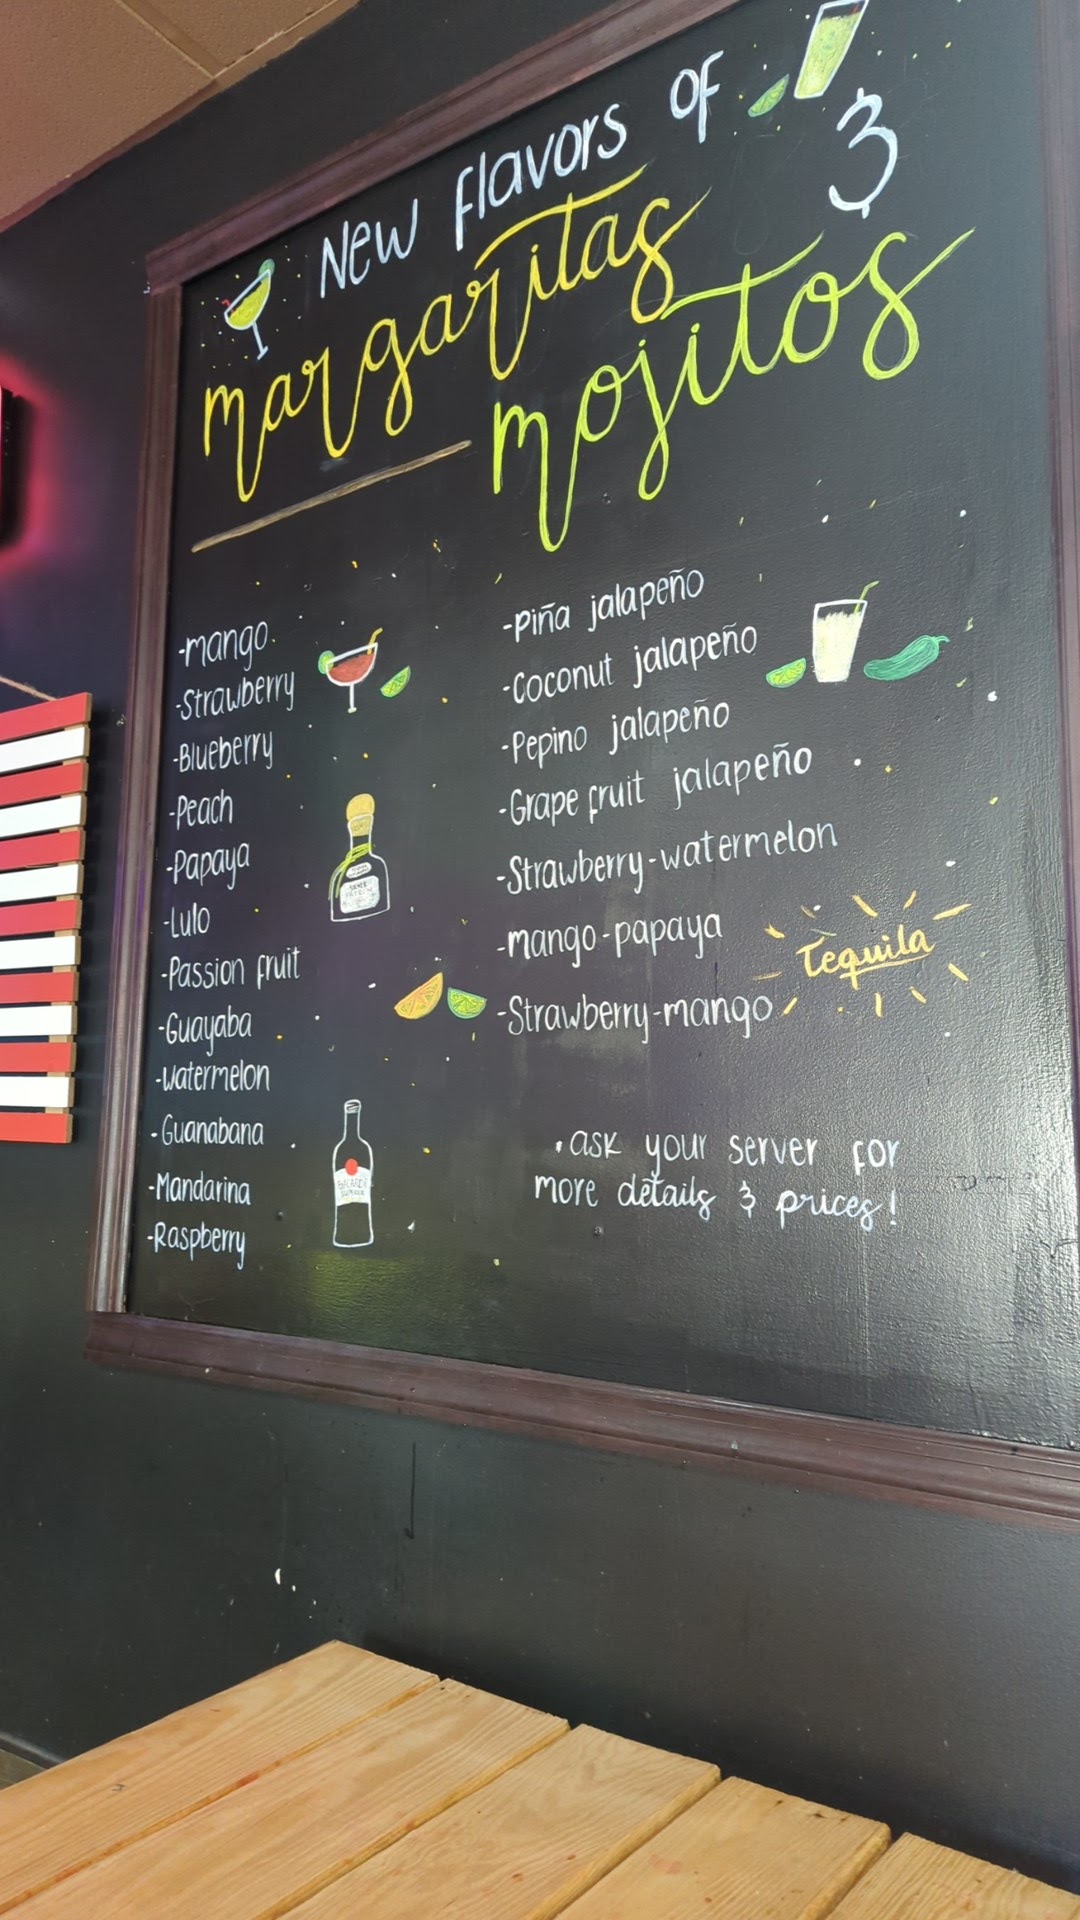 New flavors of
margaritas &
mojitos
-mango
-Strawberry
-Blueberry
-Peach
-Papaya
-Lulo
-Passion fruit
-Guayaba
-watermelon
-Guanabana
-Mandarina
-Raspberry
-piña jalapeño
-Coconut jalapeño
-Pepino jalapeño
-Grapefruit jalapeño
-Strawberry-watermelon
-mango-papaya
-Strawberry-mango
Tequila
•ask your server for
more details & prices!